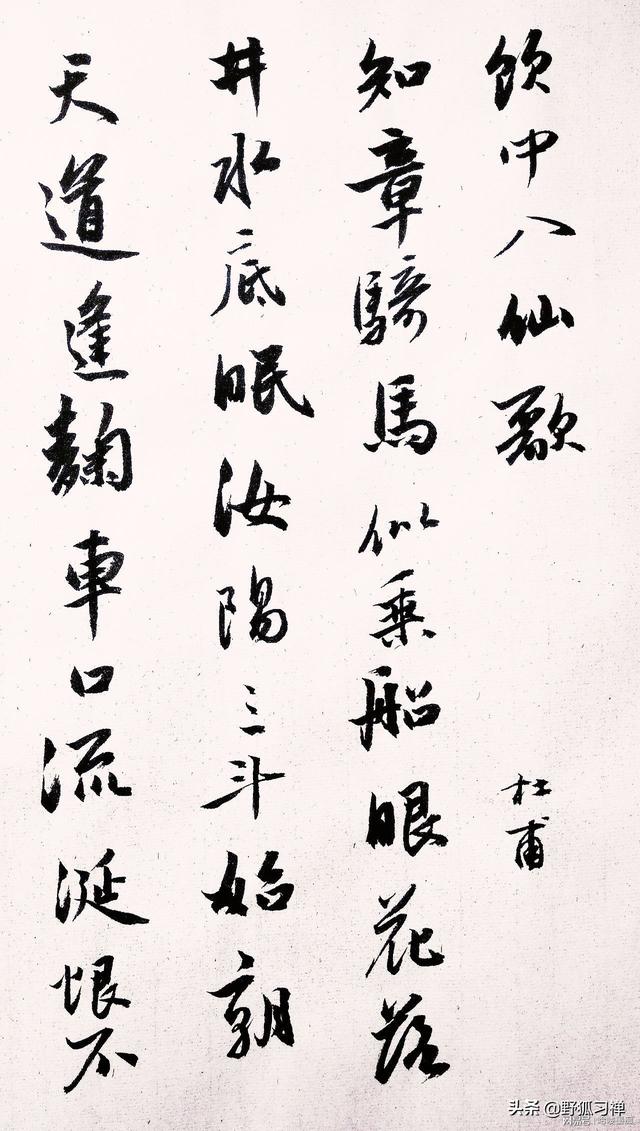 飲中八仙歌 杜甫
知章騎馬似乗船眼花落
井水底眠汝陽三斗始朝
天道逢麹車口流涎恨不
头条 @野狐习禅